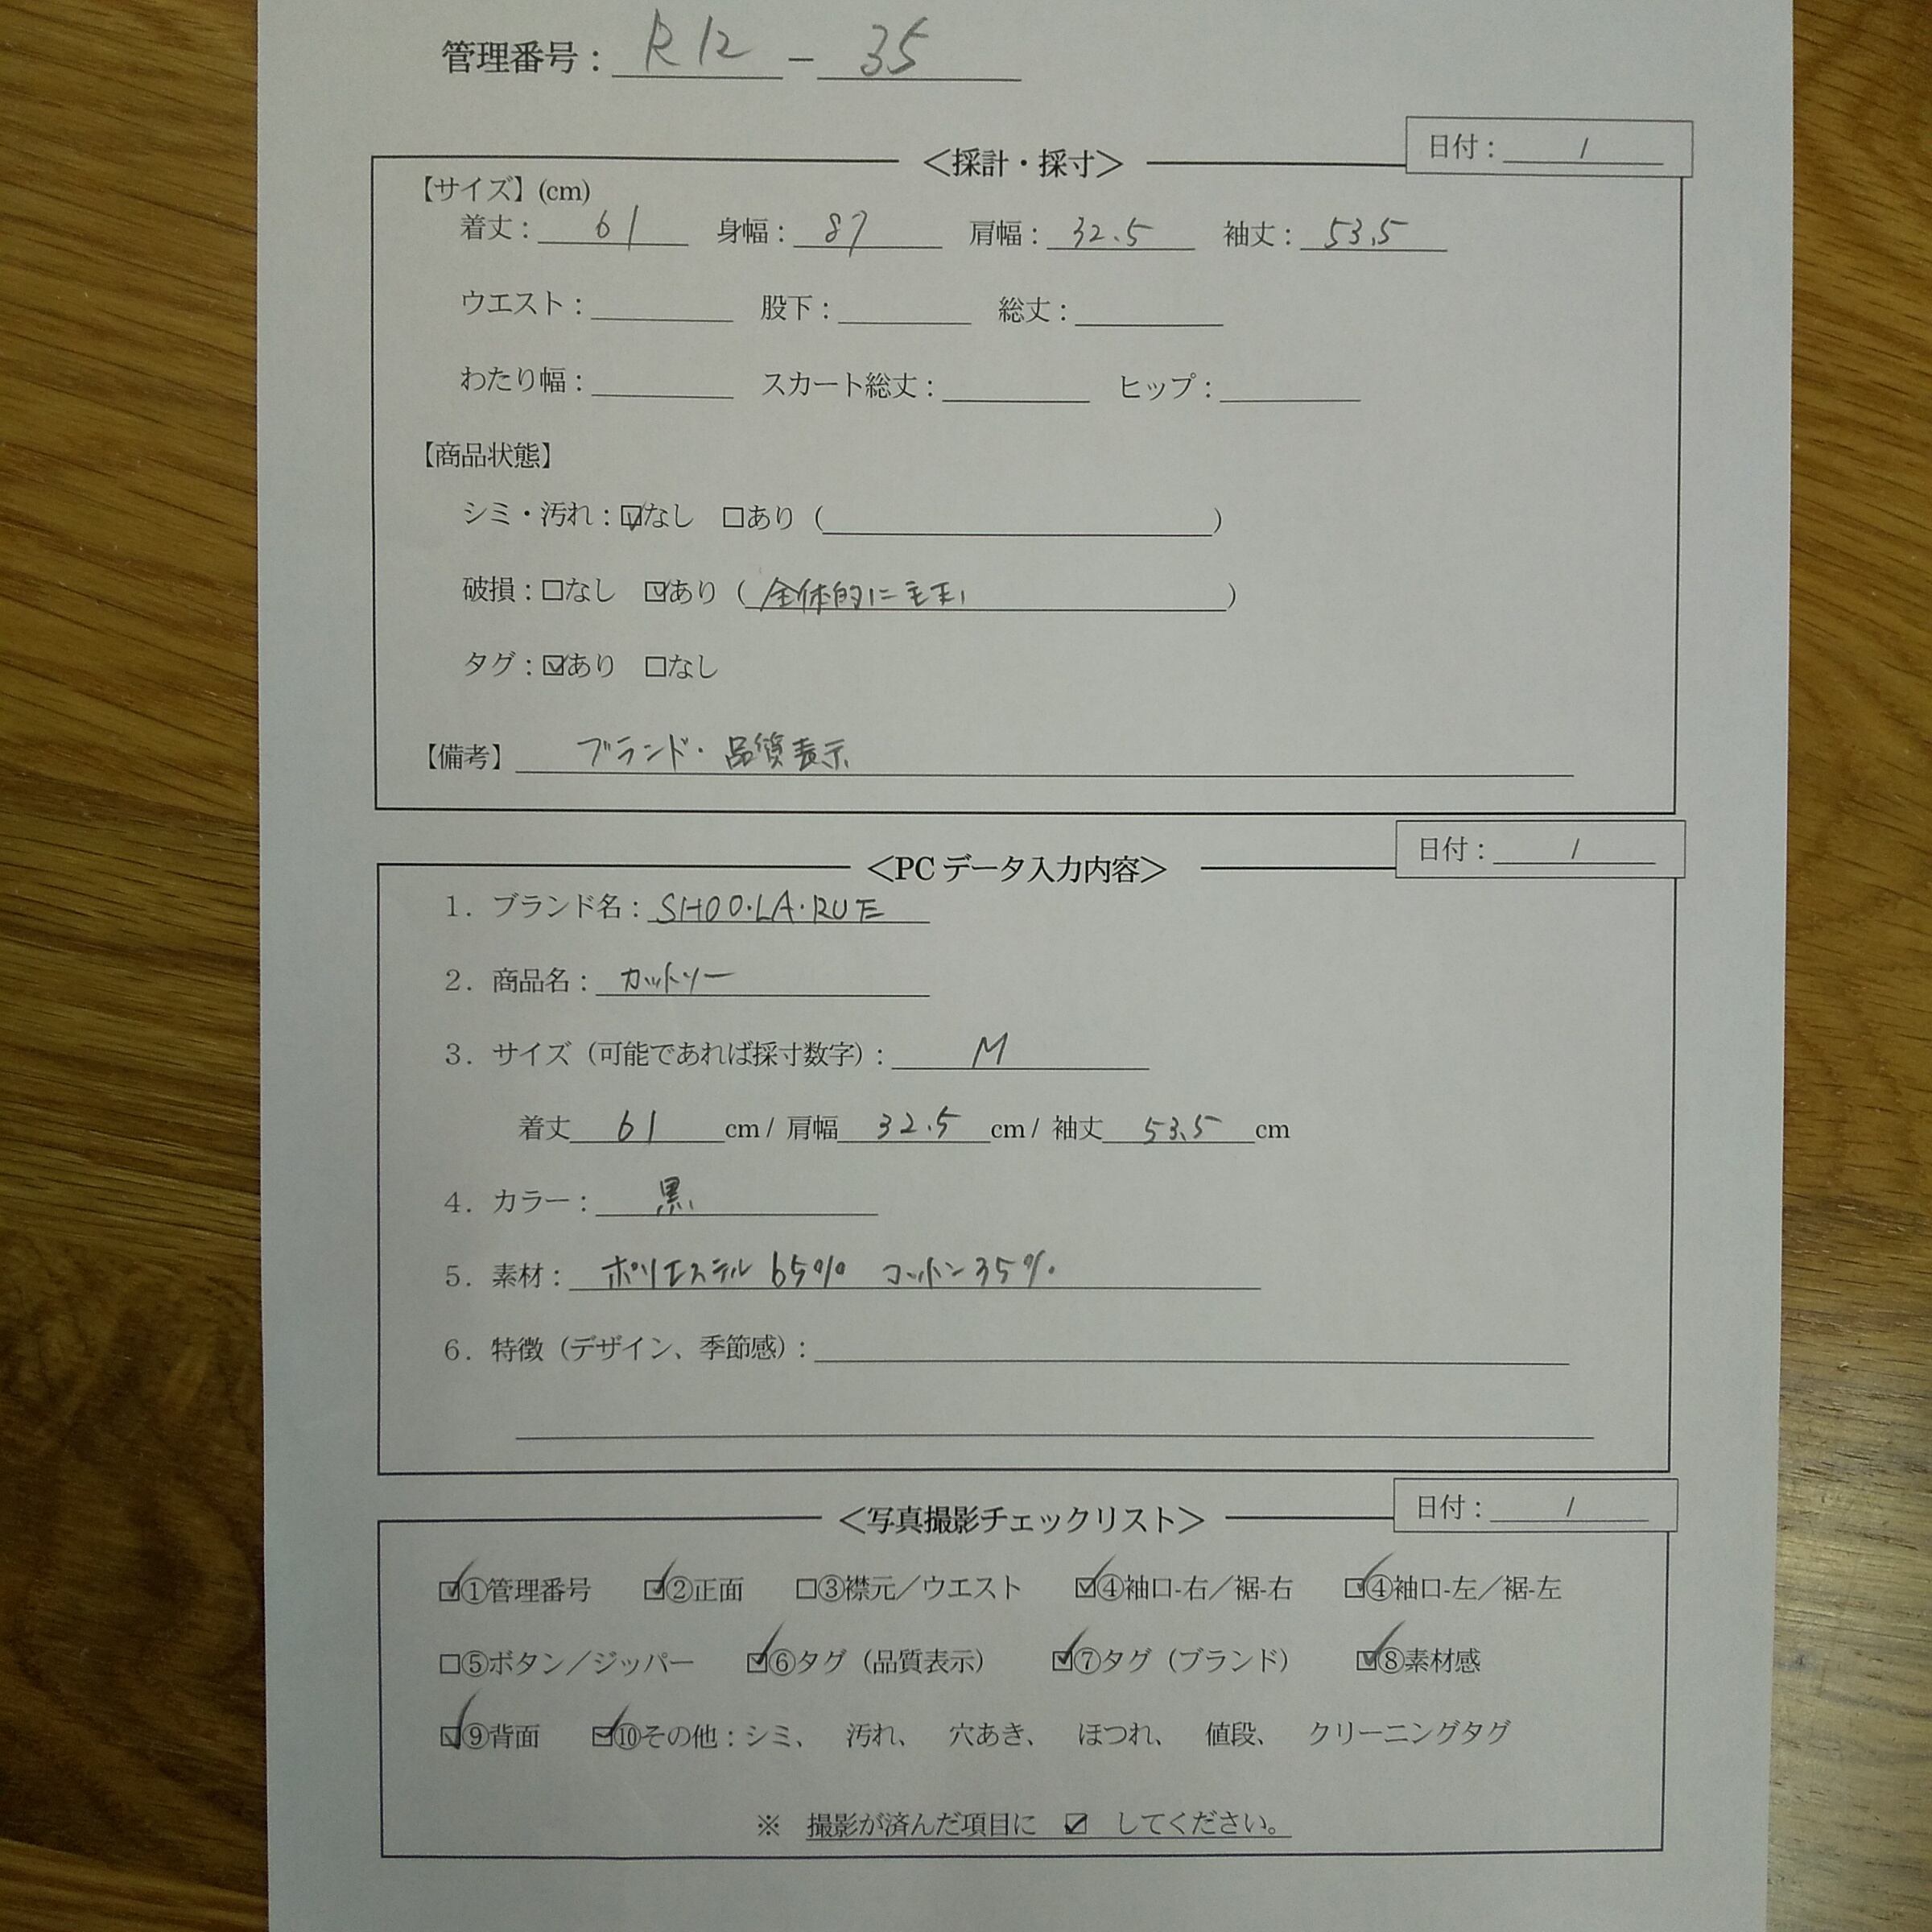 管理番号： R12 － 35
＜採計・採寸＞
日付： /
【サイズ】(cm)
着丈： 61 身幅： 87 肩幅： 32.5 袖丈： 53.5
ウエスト： 股下： 総丈：
わたり幅： スカート総丈： ヒップ：
【商品状態】
シミ・汚れ：☑なし □あり（ ）
破損：□なし ☑あり（全体的に毛玉）
タグ：☑あり □なし
【備考】 ブランド・品質表示
＜PC データ入力内容＞
日付： /
1．ブランド名：SHOO・LA・RUE
2．商品名： カットソー
3．サイズ（可能であれば採寸数字）： M
着丈 61 cm / 肩幅 32.5 cm / 袖丈 53.5 cm
4．カラー： 黒
5．素材： ポリエステル 65% コットン 35%
6．特徴（デザイン、季節感）：
＜写真撮影チェックリスト＞
日付： /
☑①管理番号 ☑②正面 □③襟元／ウエスト ☑④袖口-右／裾-右 ☑④袖口-左／裾-左
□⑤ボタン／ジッパー ☑⑥タグ（品質表示） ☑⑦タグ（ブランド） ☑⑧素材感
☑⑨背面 ☑⑩その他：シミ、 汚れ、 穴あき、 ほつれ、 値段、 クリーニングタグ
※ 撮影が済んだ項目に ☑ してください。